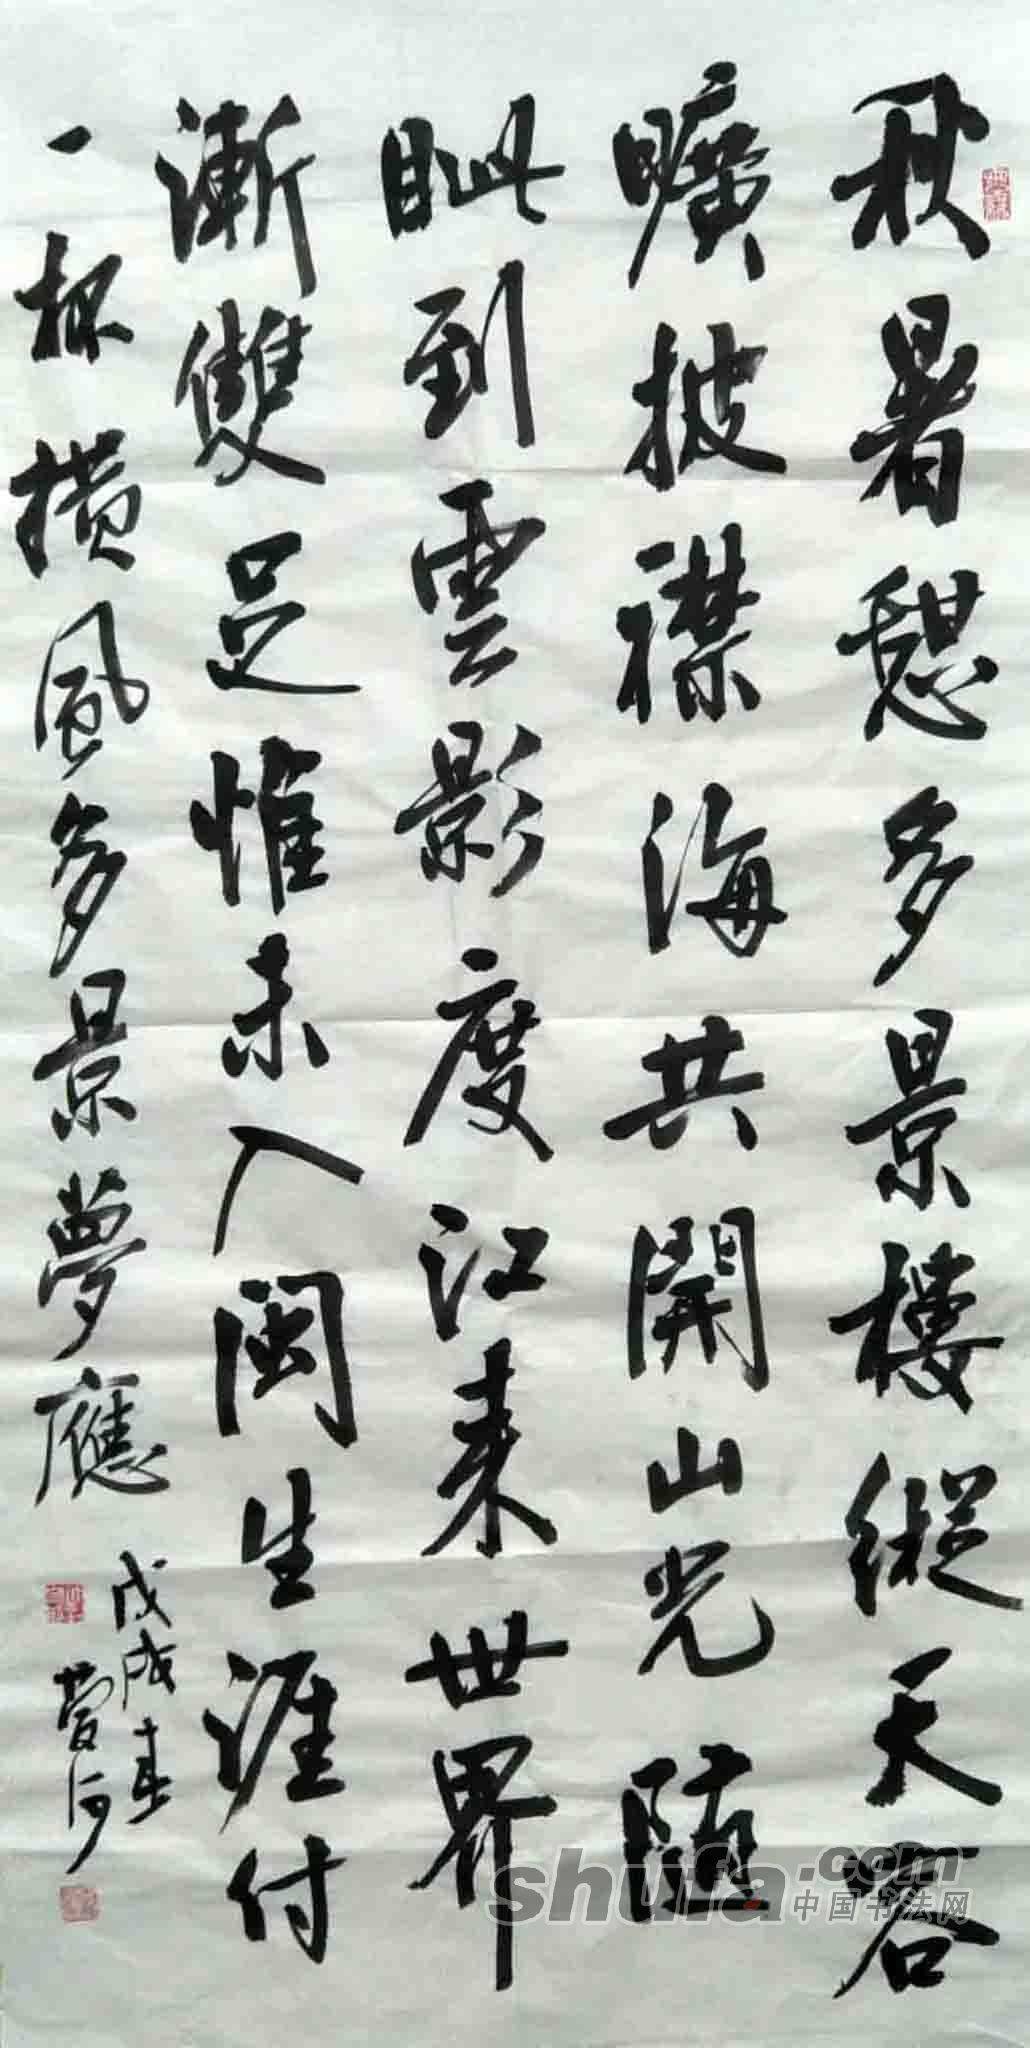 秋暑憩多景樓縱天容
曠披襟海共開山光隨
眦到雲影度江來世界
漸雙足惟未入閩生涯付
一杯橫風多景夢應
戊戌春
shufa.com
中国书法网